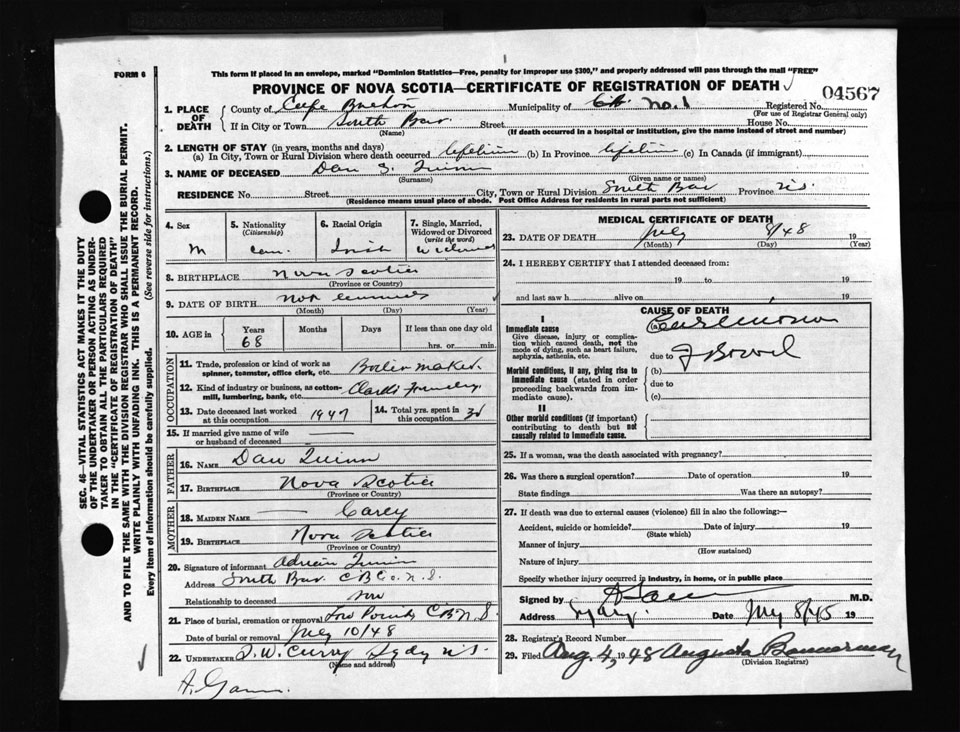 FORM 6
This form if placed in an envelope, marked "Dominion Statistics—Free, penalty for improper use $300," and properly addressed will pass through the mail "FREE"
PROVINCE OF NOVA SCOTIA—CERTIFICATE OF REGISTRATION OF DEATH
04567
1. PLACE OF DEATH
County of Cape Breton Municipality of C.B. No. 1 Registered No.
(For use of Registrar General only)
If in City or Town South Bar Street House No.
(Name) (If death occurred in a hospital or institution, give the name instead of street and number)
2. LENGTH OF STAY (in years, months and days)
(a) In City, Town or Rural Division where death occurred lifetime (b) In Province lifetime (c) In Canada (if immigrant)
3. NAME OF DECEASED Dan S. Quinn
(Surname) (Given name or names)
RESIDENCE No. Street City, Town or Rural Division South Bar Province N.S.
(Residence means usual place of abode. Post Office Address for residents in rural parts not sufficient)
4. Sex M
5. Nationality (Citizenship) Can.
6. Racial Origin Irish
7. Single, Married, Widowed or Divorced (write the word) Widower
8. BIRTHPLACE Nova Scotia
(Province or Country)
9. DATE OF BIRTH not
(Month) (Day) (Year)
10. AGE in Years 68 Months Days If less than one day old
hrs. or min.
OCCUPATION
11. Trade, profession or kind of work as spinner, teamster, office clerk, etc. Boiler maker
12. Kind of industry or business, as cotton-mill, lumbering, bank, etc.
13. Date deceased last worked at this occupation 1947
14. Total yrs. spent in this occupation
15. If married give name of wife or husband of deceased —
FATHER
16. NAME Dan Quinn
17. BIRTHPLACE Nova Scotia
(Province or Country)
MOTHER
18. MAIDEN NAME — Carey
19. BIRTHPLACE Nova Scotia
(Province or Country)
20. Signature of informant Adrian Quinn
Address South Bar C B Co. N.S.
Relationship to deceased son
21. Place of burial, cremation or removal Low Point C B N.S.
Date of burial or removal July 10/48
22. UNDERTAKER T.W. Curry Sydy N.S.
(Name and address)
MEDICAL CERTIFICATE OF DEATH
23. DATE OF DEATH July 8/48
(Month) (Day) (Year)
24. I HEREBY CERTIFY that I attended deceased from:
19 to 19
and last saw h alive on 19
CAUSE OF DEATH
I
Immediate cause
Give disease, injury or complication which caused death, not the mode of dying, such as heart failure, asphyxia, asthenia, etc.
(a) Carcinoma
due to of Bowel
Morbid conditions, if any, giving rise to immediate cause (stated in order proceeding backwards from immediate cause).
(b)
due to
(c)
II
Other morbid conditions (if important) contributing to death but not causally related to immediate cause.
25. If a woman, was the death associated with pregnancy?
26. Was there a surgical operation? Date of operation 19
State findings Was there an autopsy?
27. If death was due to external causes (violence) fill in also the following:—
Accident, suicide or homicide? Date of injury 19
(State which)
Manner of injury
(How sustained)
Nature of injury
Specify whether injury occurred in industry, in home, or in public place
Signed by M.D.
Address Sydy. Date July 8/48 19
28. Registrar's Record Number
29. Filed Aug 4, 1948 Augusta Bannerman
(Division Registrar)
SEC. 46—VITAL STATISTICS ACT MAKES IT THE DUTY
OF THE UNDERTAKER OR PERSON ACTING AS UNDER-
TAKER TO OBTAIN ALL THE PARTICULARS REQUIRED
IN THE "CERTIFICATE OF REGISTRATION OF DEATH"
AND TO FILE THE SAME WITH THE DIVISION REGISTRAR WHO SHALL ISSUE THE BURIAL PERMIT.
WRITE PLAINLY WITH UNFADING INK. THIS IS A PERMANENT RECORD.
Every item of information should be carefully supplied. (See reverse side for instructions.)